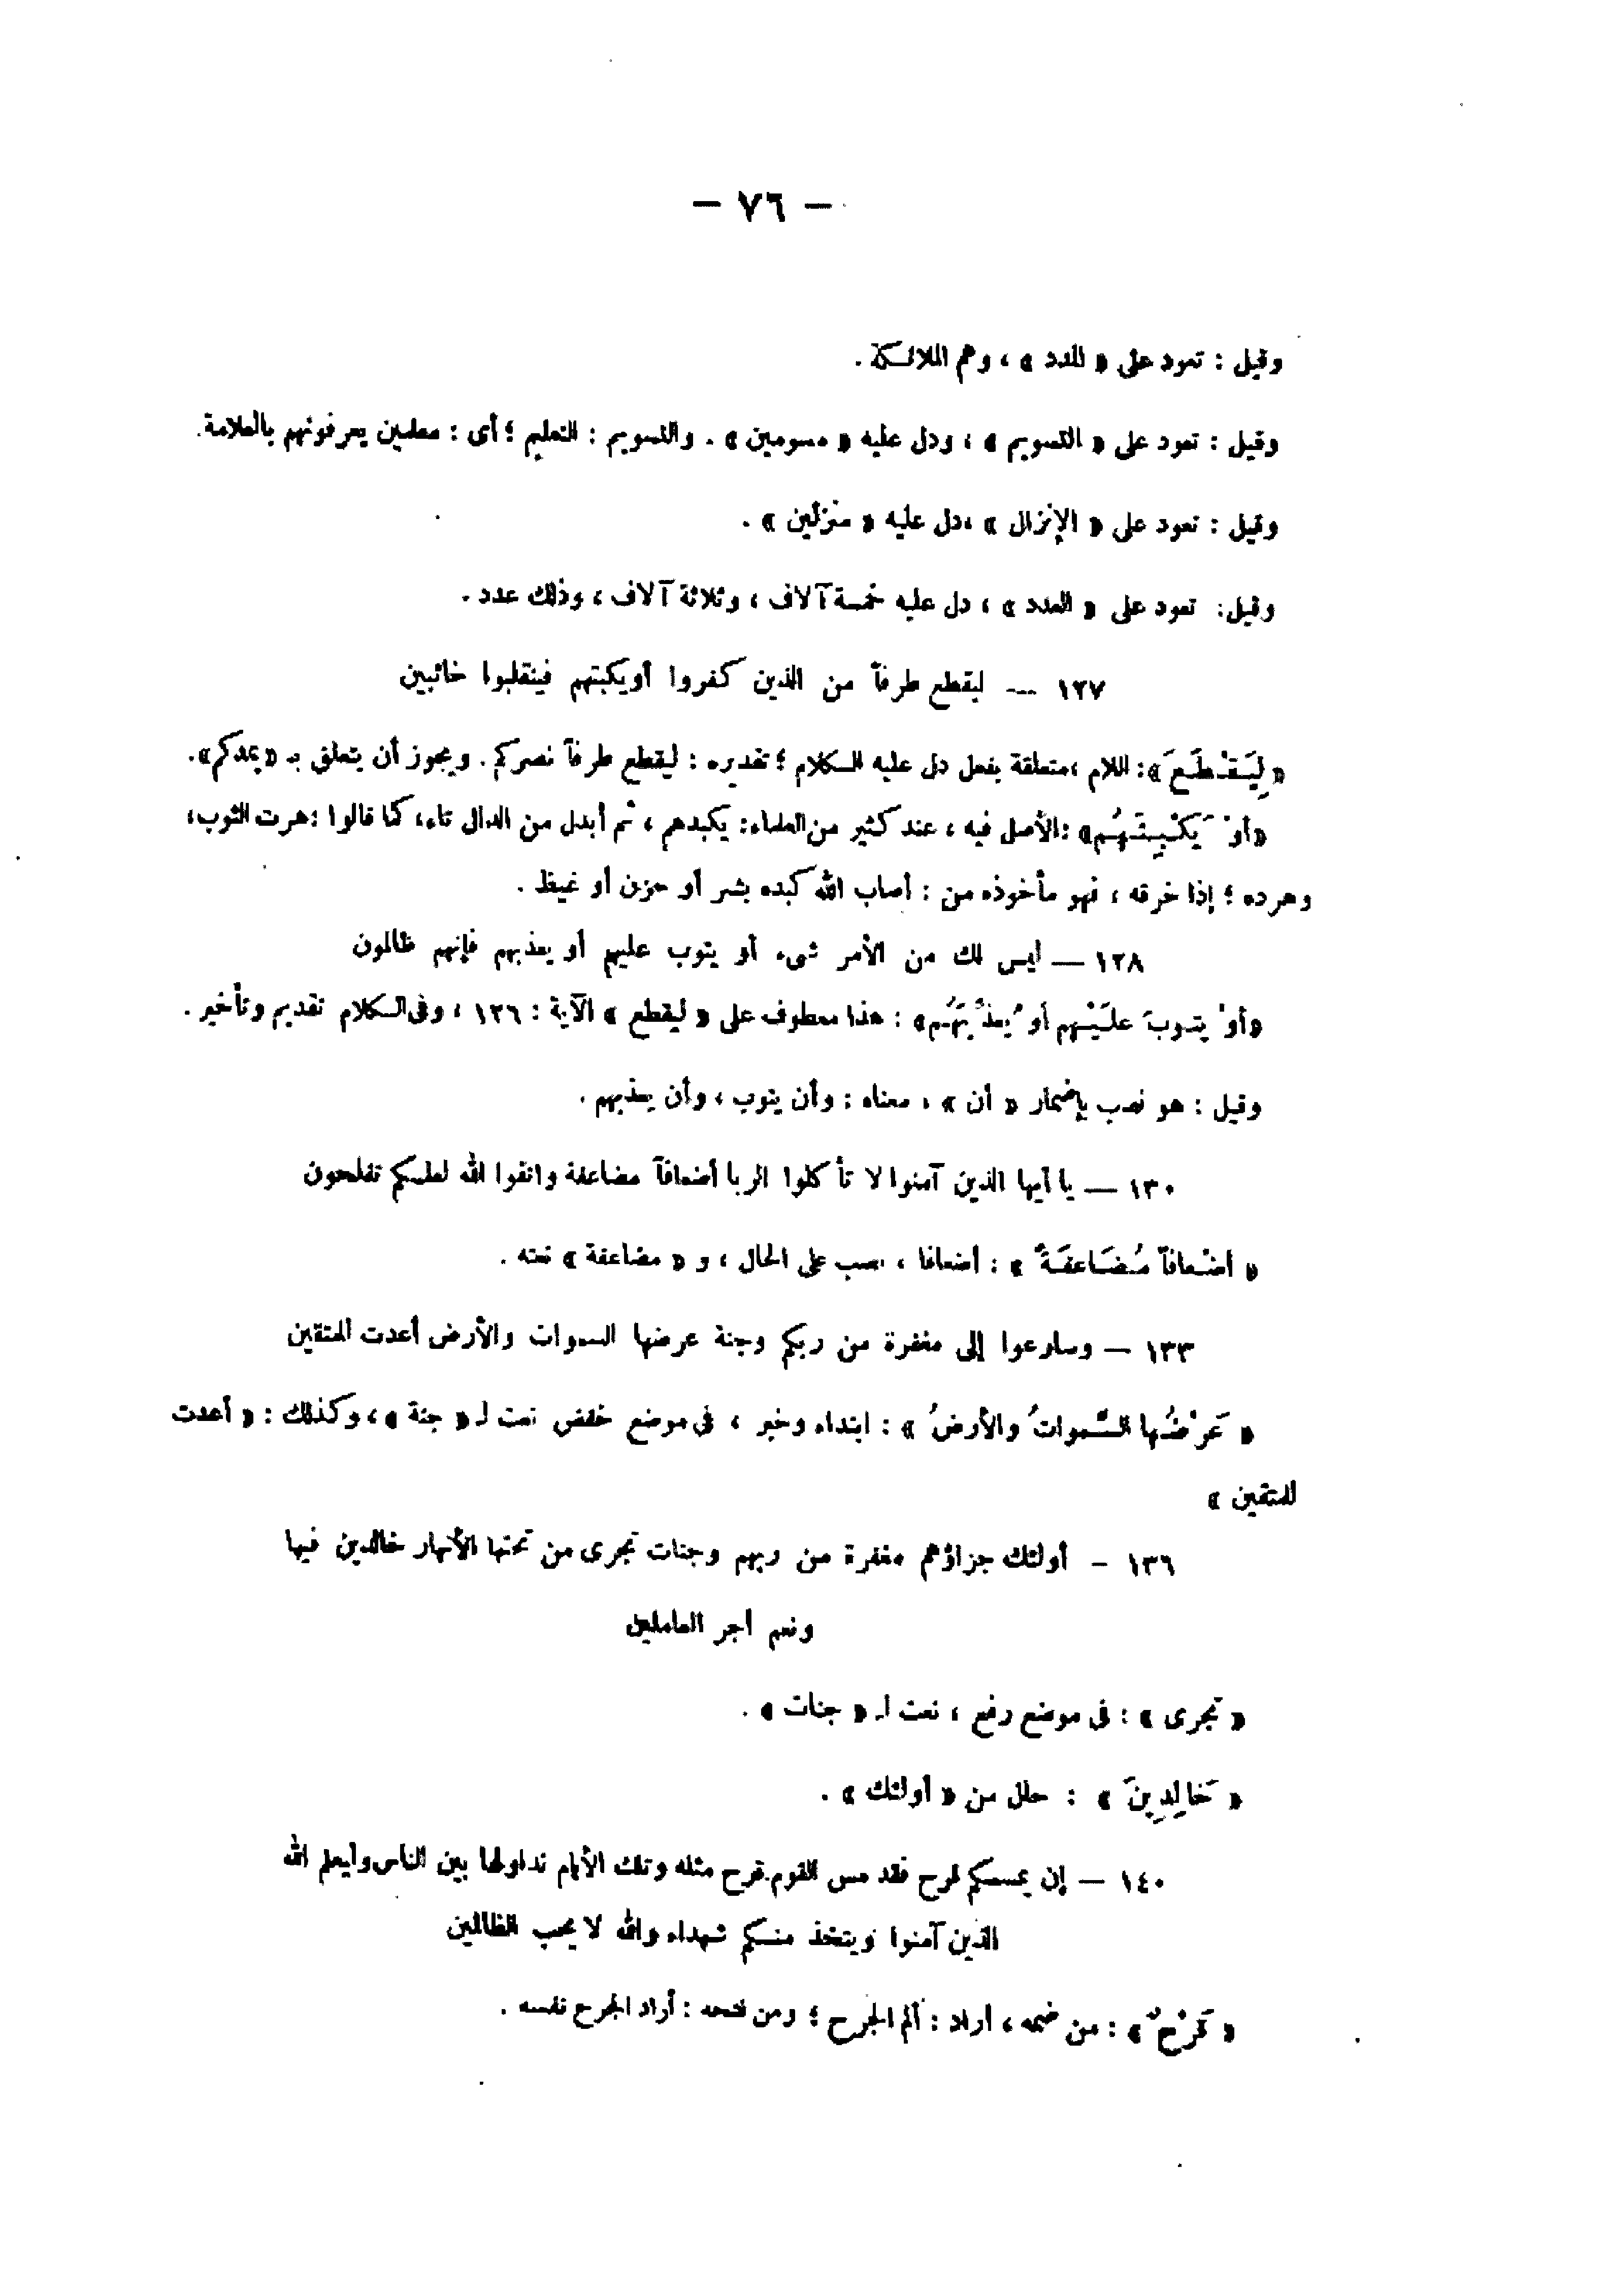 — ٧٦ —
وقيل : تعود على « المدد » ، وهم الملائكة .
وقيل : تعود على « التسويم » ، ودل عليه « مسومين » . والتسويم : التعليم ؛ أى : معلمين يعرفونهم بالعلامة .
وقيل : تعود على « الإنزال » ،دل عليه « منزلين » .
وقيل : تعود على « العدد » ، دل عليه خمسة آلاف ، وثلاثة آلاف ، وذلك عدد .
١٢٧ — ليقطع طرفاً من الذين كفروا أويكبتهم فينقلبوا خائبين
« لِيَقْطَعَ »: اللام ،متعلقة بفعل دل عليه الكلام ؛ تقديره : ليقطع طرفاً نصركم . ويجوز أن يتعلق بـ « يمدكم ».
«أوْ يَكْبِتَهُم» :الأصل فيه ، عند كثير من العلماء: يكبدهم ، ثم أبدل من الدال تاء، كما قالوا :هرت الثوب،
وهرده ؛ إذا خرقه ، فهو مأخوذه من : أصاب الله كبده بشر أو حزن أو غيظ .
١٢٨ — ليس لك من الأمر شىء أو يتوب عليهم أو يعذبهم فإنهم ظالمون
«أوْ يتوبَ علَيْهم أو يُعذِّبَهُم» : هذا معطوف على « ليقطع » الآية : ١٢٦ ، وفى الكلام تقديم وتأخير .
وقيل : هو نصب بإضمار « أن » ، معناه : وأن يتوب ، وأن يعذبهم .
١٣٠ — يا أيها الذين آمنوا لا تأكلوا الربا أضعافاً مضاعفة واتقوا الله لعلكم تفلحون
« أضْعافاً مُضَاعفَةً » : أضعافا ، نصب على الحال ، و « مضاعفة » نعته .
١٣٣ — وسارعوا إلى مغفرة من ربكم وجنة عرضها السموات والأرض أعدت للمتقين
« عَرْضُها السَّمواتُ والأرضُ » : ابتداء وخبر ، فى موضع خفض نعت لـ « جنة » ، وكذلك : « أعدت
للمتقين »
١٣٦ - أولئك جزاؤهم مغفرة من ربهم وجنات تجرى من تحتها الأنهار خالدين فيها
ونعم أجر العاملين
« تجرى » : فى موضع رفع ، نعت لـ « جنات » .
« خَالِدِينَ » : حال من « أولئك » .
١٤٠ — إن يمسسكم قرح فقد مس القوم قرح مثله وتلك الأيام نداولها بين الناس وليعلم الله
الذين آمنوا ويتخذ منكم شهداء والله لا يحب الظالمين
« قَرْحٌ » : من ضمه ، أراد : ألم الجرح ؛ ومن فتحه : أراد الجرح نفسه .